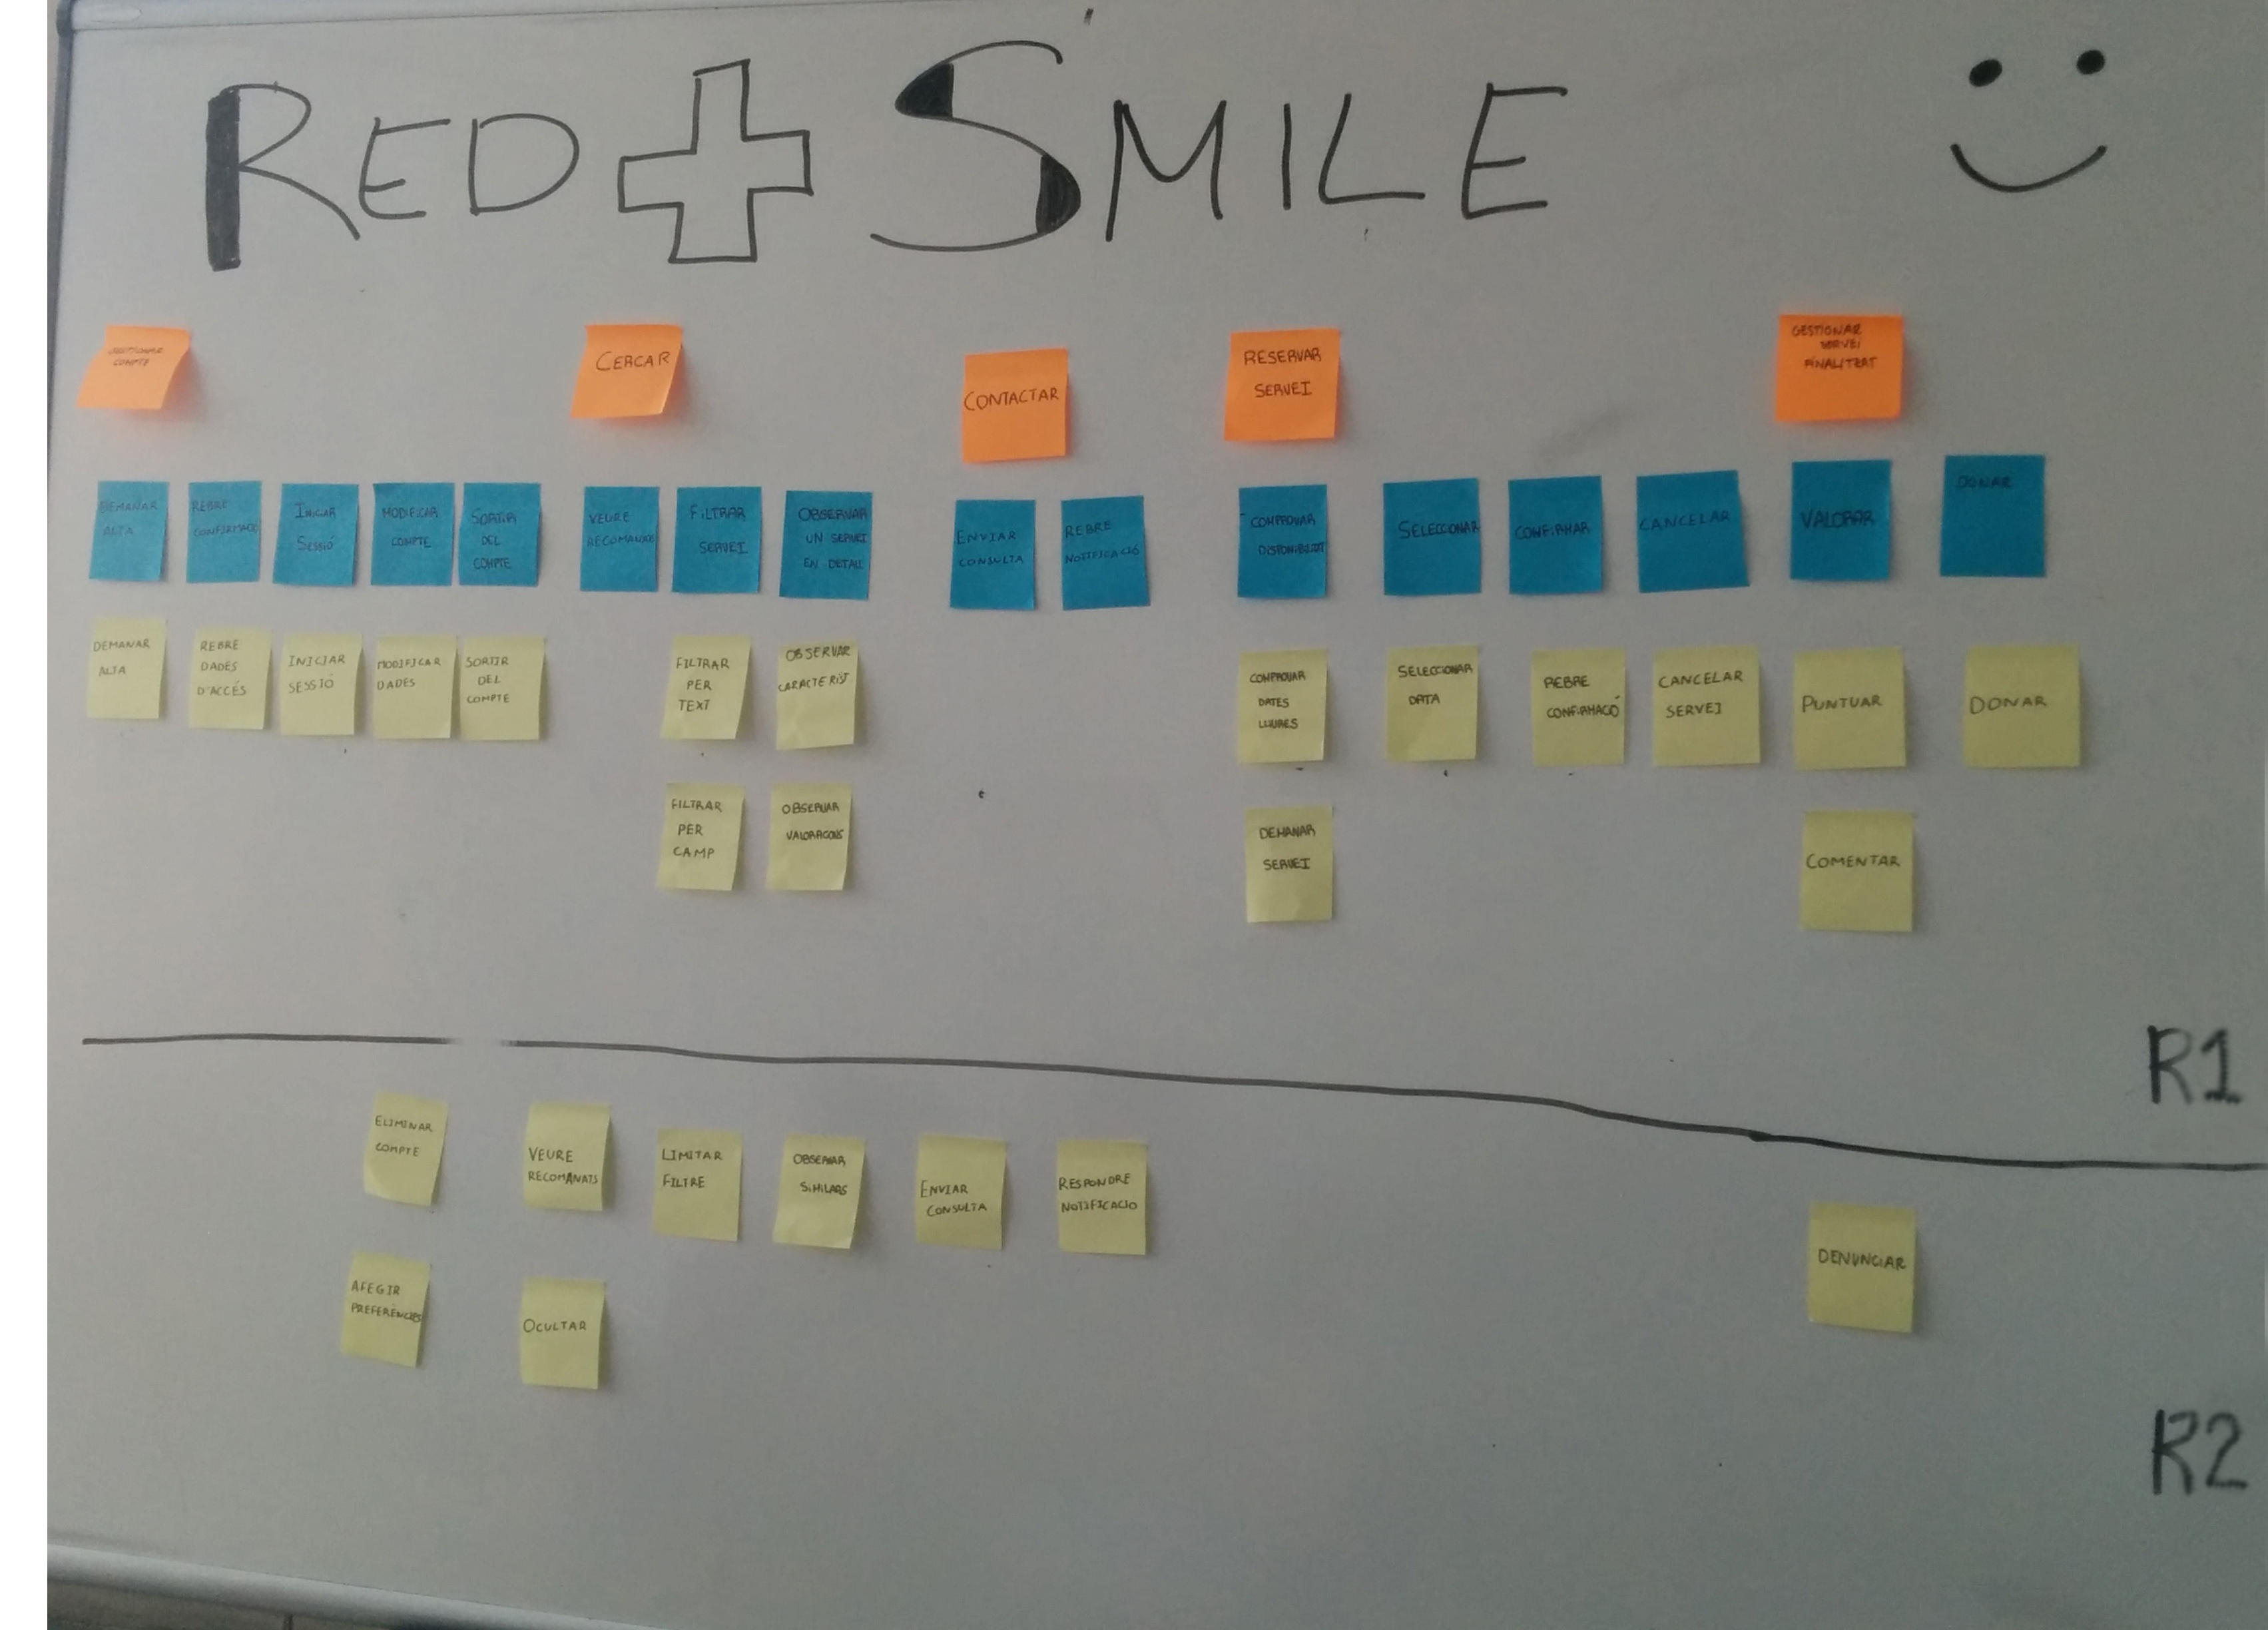 RED SMILE
GESTIONAR
COMPTE
CERCAR
CONTACTAR
RESERVAR
SERVEI
GESTIONAR
SERVEI
FINALITZAT
DEMANAR
ALTA
REBRE
CONFIRMACIÓ
INICIAR
SESSIÓ
MODIFICAR
COMPTE
SORTIR
DEL
COMPTE
VEURE
RECOMANATS
FILTRAR
SERVEI
OBSERVAR
UN SERVEI
EN DETALL
ENVIAR
CONSULTA
REBRE
NOTIFICACIÓ
COMPROVAR
DISPONIBILITAT
SELECCIONAR
CONFIRMAR
CANCELAR
VALORAR
DONAR
DEMANAR
ALTA
REBRE
DADES
D'ACCÉS
INICIAR
SESSIÓ
MODIFICAR
DADES
SORTIR
DEL
COMPTE
FILTRAR
PER
TEXT
OBSERVAR
CARACTERÍST
COMPROVAR
DATES
LLIURES
SELECCIONAR
DATA
REBRE
CONFIRMACIÓ
CANCELAR
SERVEI
PUNTUAR
DONAR
FILTRAR
PER
CAMP
OBSERVAR
VALORACIONS
DEMANAR
SERVEI
COMENTAR
R1
ELIMINAR
COMPTE
VEURE
RECOMANATS
LIMITAR
FILTRE
OBSERVAR
SIMILARS
ENVIAR
CONSULTA
RESPONDRE
NOTIFICACIO
DENUNCIAR
AFEGIR
PREFERÈNCIES
OCULTAR
R2